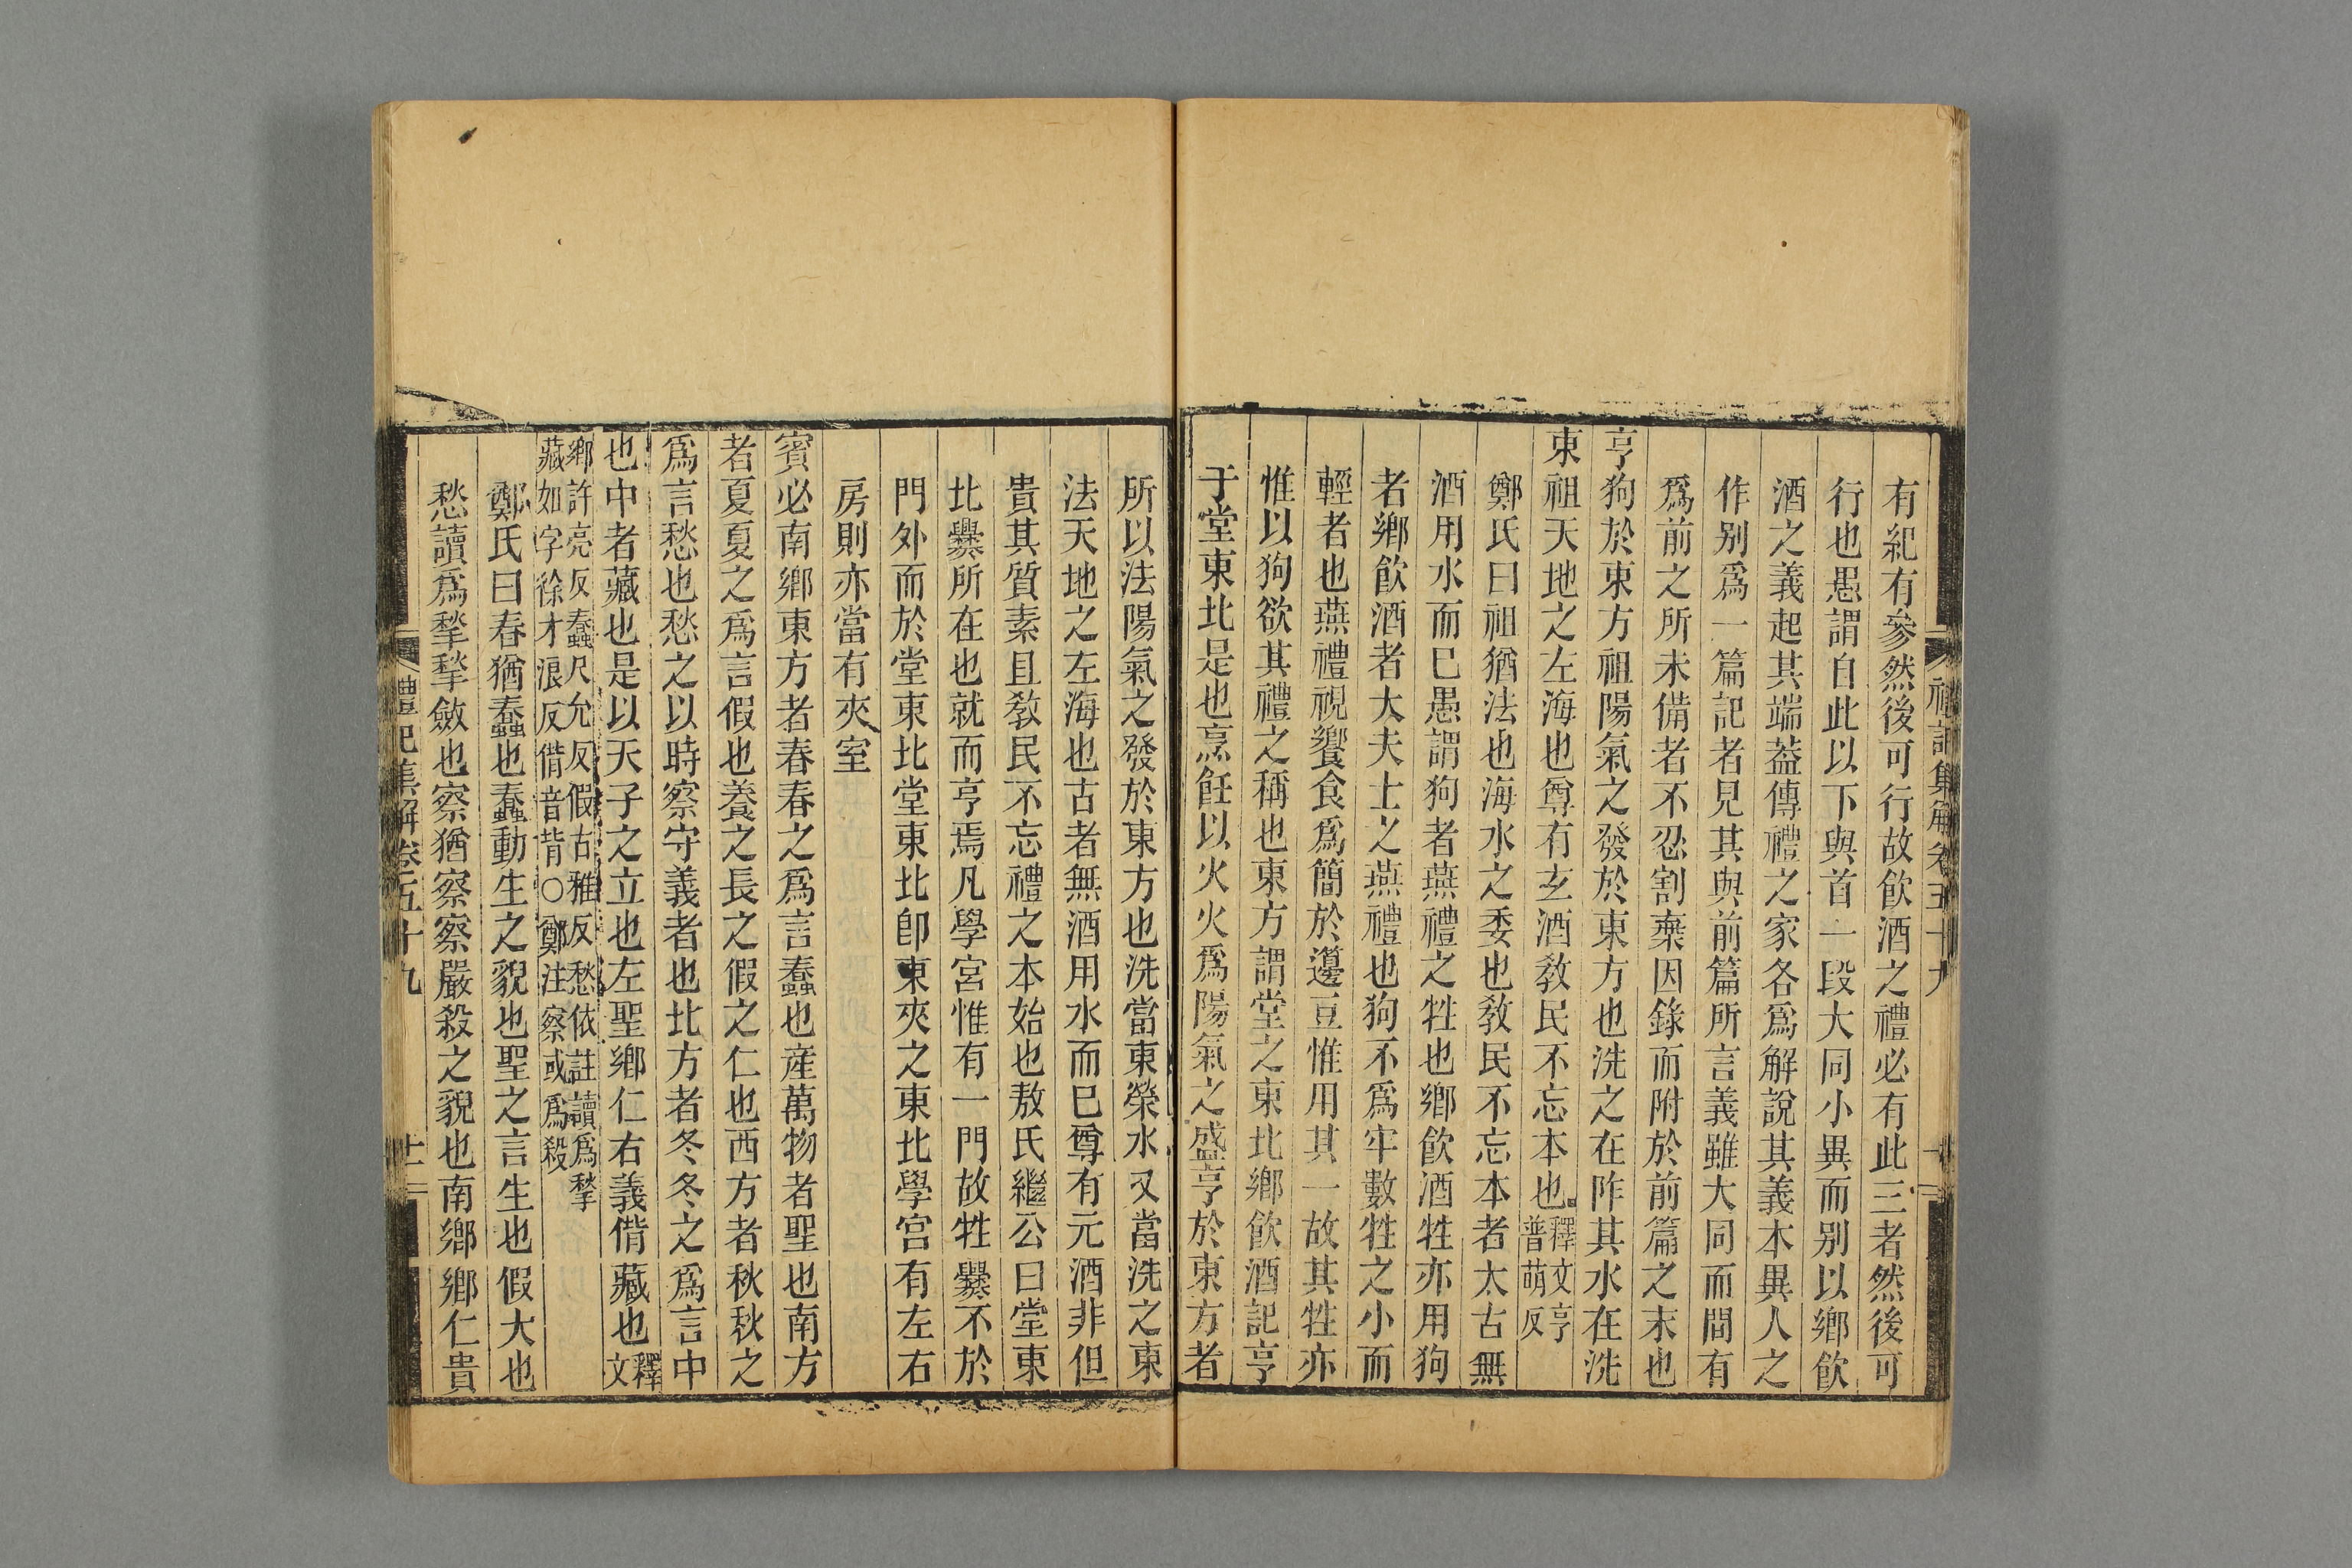 有紀有參然後可行故飲酒之禮必有此三者然後可
行也愚謂自此以下與首一段大同小異而別以鄉飲
酒之義起其端葢傳禮之家各爲解說其義本異人之
作別爲一篇記者見其與前篇所言義雖大同而間有
爲前之所未備者不忍割棄因錄而附於前篇之末也
亨狗於東方祖陽氣之發於東方也洗之在阼其水在洗
東祖天地之左海也尊有玄酒敎民不忘本也釋文亨普萌反
鄭氏曰祖猶法也海水之委也敎民不忘本者太古無
酒用水而已愚謂狗者燕禮之牲也鄉飲酒牲亦用狗
者鄉飲酒者大夫士之燕禮也狗不爲牢數牲之小而
輕者也燕禮視饗食爲簡於籩豆惟用其一故其牲亦
惟以狗欲其禮之稱也東方謂堂之東北鄉飲酒記亨
于堂東北是也烹飪以火火爲陽氣之盛亨於東方者
所以法陽氣之發於東方也洗當東榮水又當洗之東
法天地之左海也古者無酒用水而已尊有元酒非但
貴其質素且敎民不忘禮之本始也敖氏繼公曰堂東
北爨所在也就而亨焉凡學宮惟有一門故牲爨不於
門外而於堂東北堂東北卽東夾之東北學宮有左右
房則亦當有夾室
賓必南鄉東方者春春之爲言蠢也產萬物者聖也南方
者夏夏之爲言假也養之長之假之仁也西方者秋秋之
爲言愁也愁之以時察守義者也北方者冬冬之爲言中
也中者藏也是以天子之立也左聖鄉仁右義偝藏也釋文
鄉許亮反蠢尺允反假古雅反愁依註讀爲揫
藏如字徐才浪反偝音背○鄭注察或爲殺
鄭氏曰春猶蠢也蠢動生之貌也聖之言生也假大也
愁讀爲揫揫斂也察猶察察嚴殺之貌也南鄉鄉仁貴
禮記集解卷五十九
十二